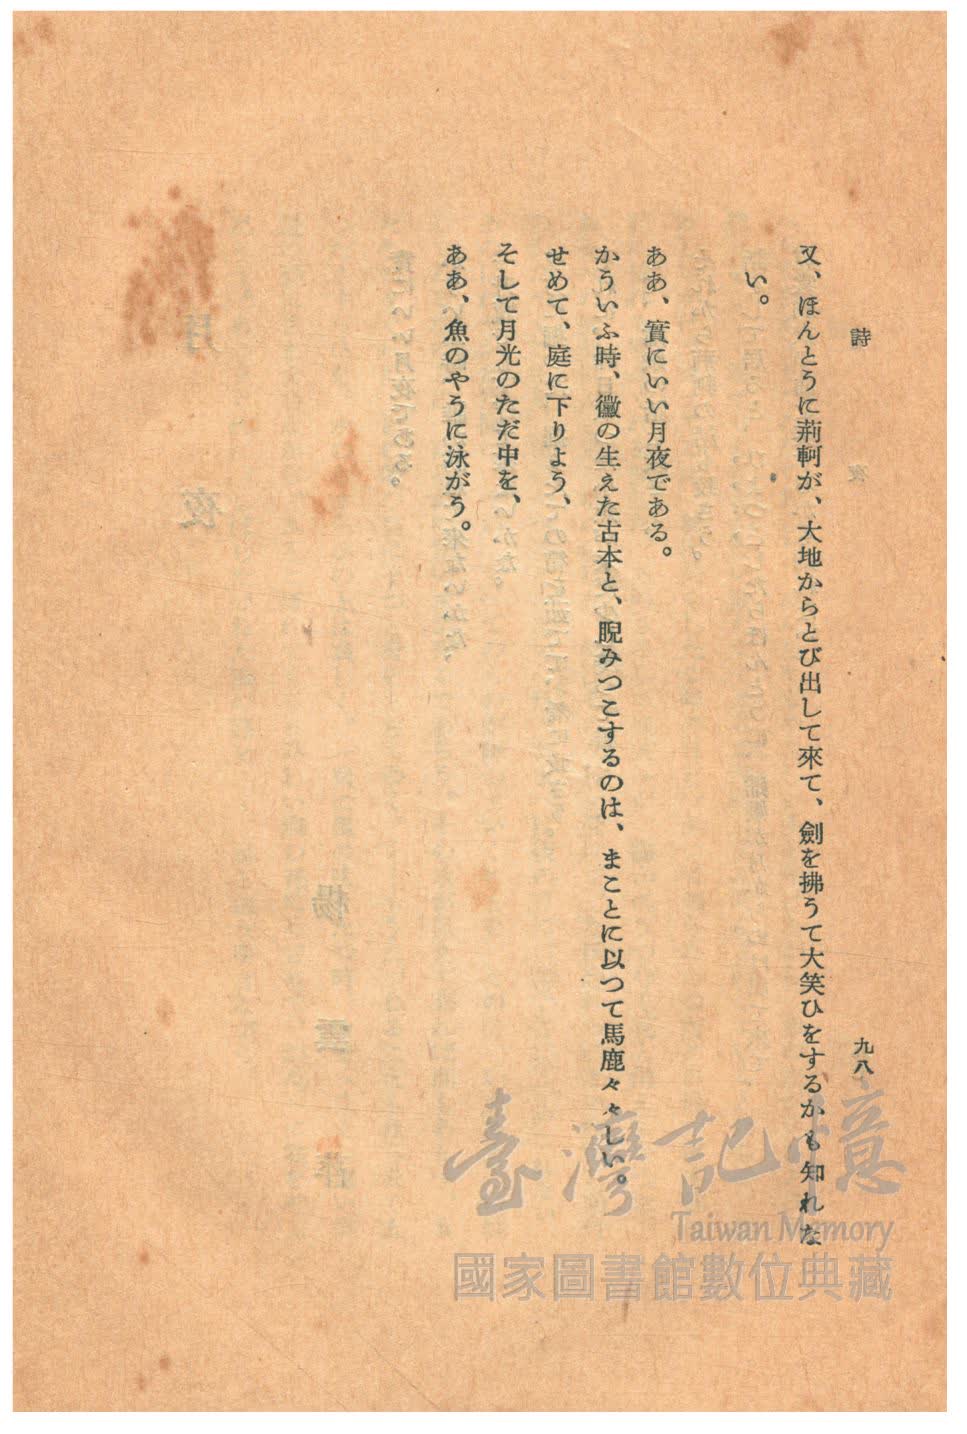 詩
九八
又、ほんとうに荊軻が、大地からとび出して來て、劍を拂うて大笑ひをするかも知れな
い。
ああ、實にいい月夜である。
かういふ時、黴の生えた古本と、睨みつこするのは、まことに以つて馬鹿々々しい。
せめて、庭に下りよう、
そして月光のただ中を、
ああ、魚のやうに泳がう。
臺灣記憶
Taiwan Memory
國家圖書館數位典藏